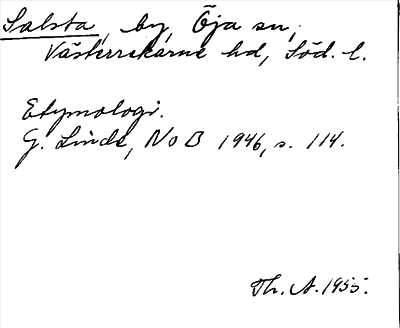 Salsta, by, Öja sn,
Västerrekarne hd, Söd. l.
Etymologi.
G. Linde, NoB 1946, s. 114.
Th. A. 1955.